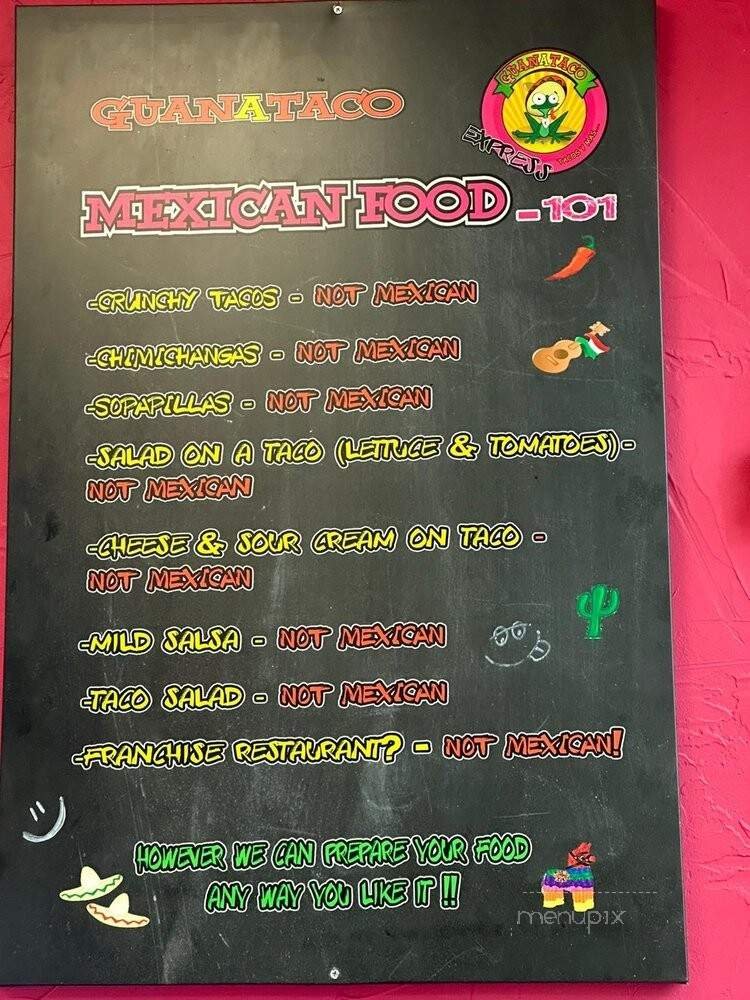 GUANATACO
GUANATACO
EXPRESS
TACOS Y MAS...
MEXICAN FOOD - 101
-CRUNCHY TACOS - NOT MEXICAN
-CHIMICHANGAS - NOT MEXICAN
-SOPAPILLAS - NOT MEXICAN
-SALAD ON A TACO (LETTUCE & TOMATOES)) -
NOT MEXICAN
-CHEESE & SOUR CREAM ON TACO -
NOT MEXICAN
-MILD SALSA - NOT MEXICAN
-TACO SALAD - NOT MEXICAN
-FRANCHISE RESTAURANT? - NOT MEXICAN!
HOWEVER WE CAN PREPARE YOUR FOOD
ANY WAY YOU LIKE IT !!
menupix